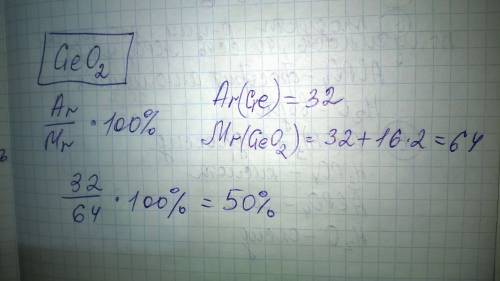 GeO₂
Ar/Mr · 100%
Ar(Ge) = 32
Mr(GeO₂) = 32+16·2 = 64
32/64 · 100% = 50%